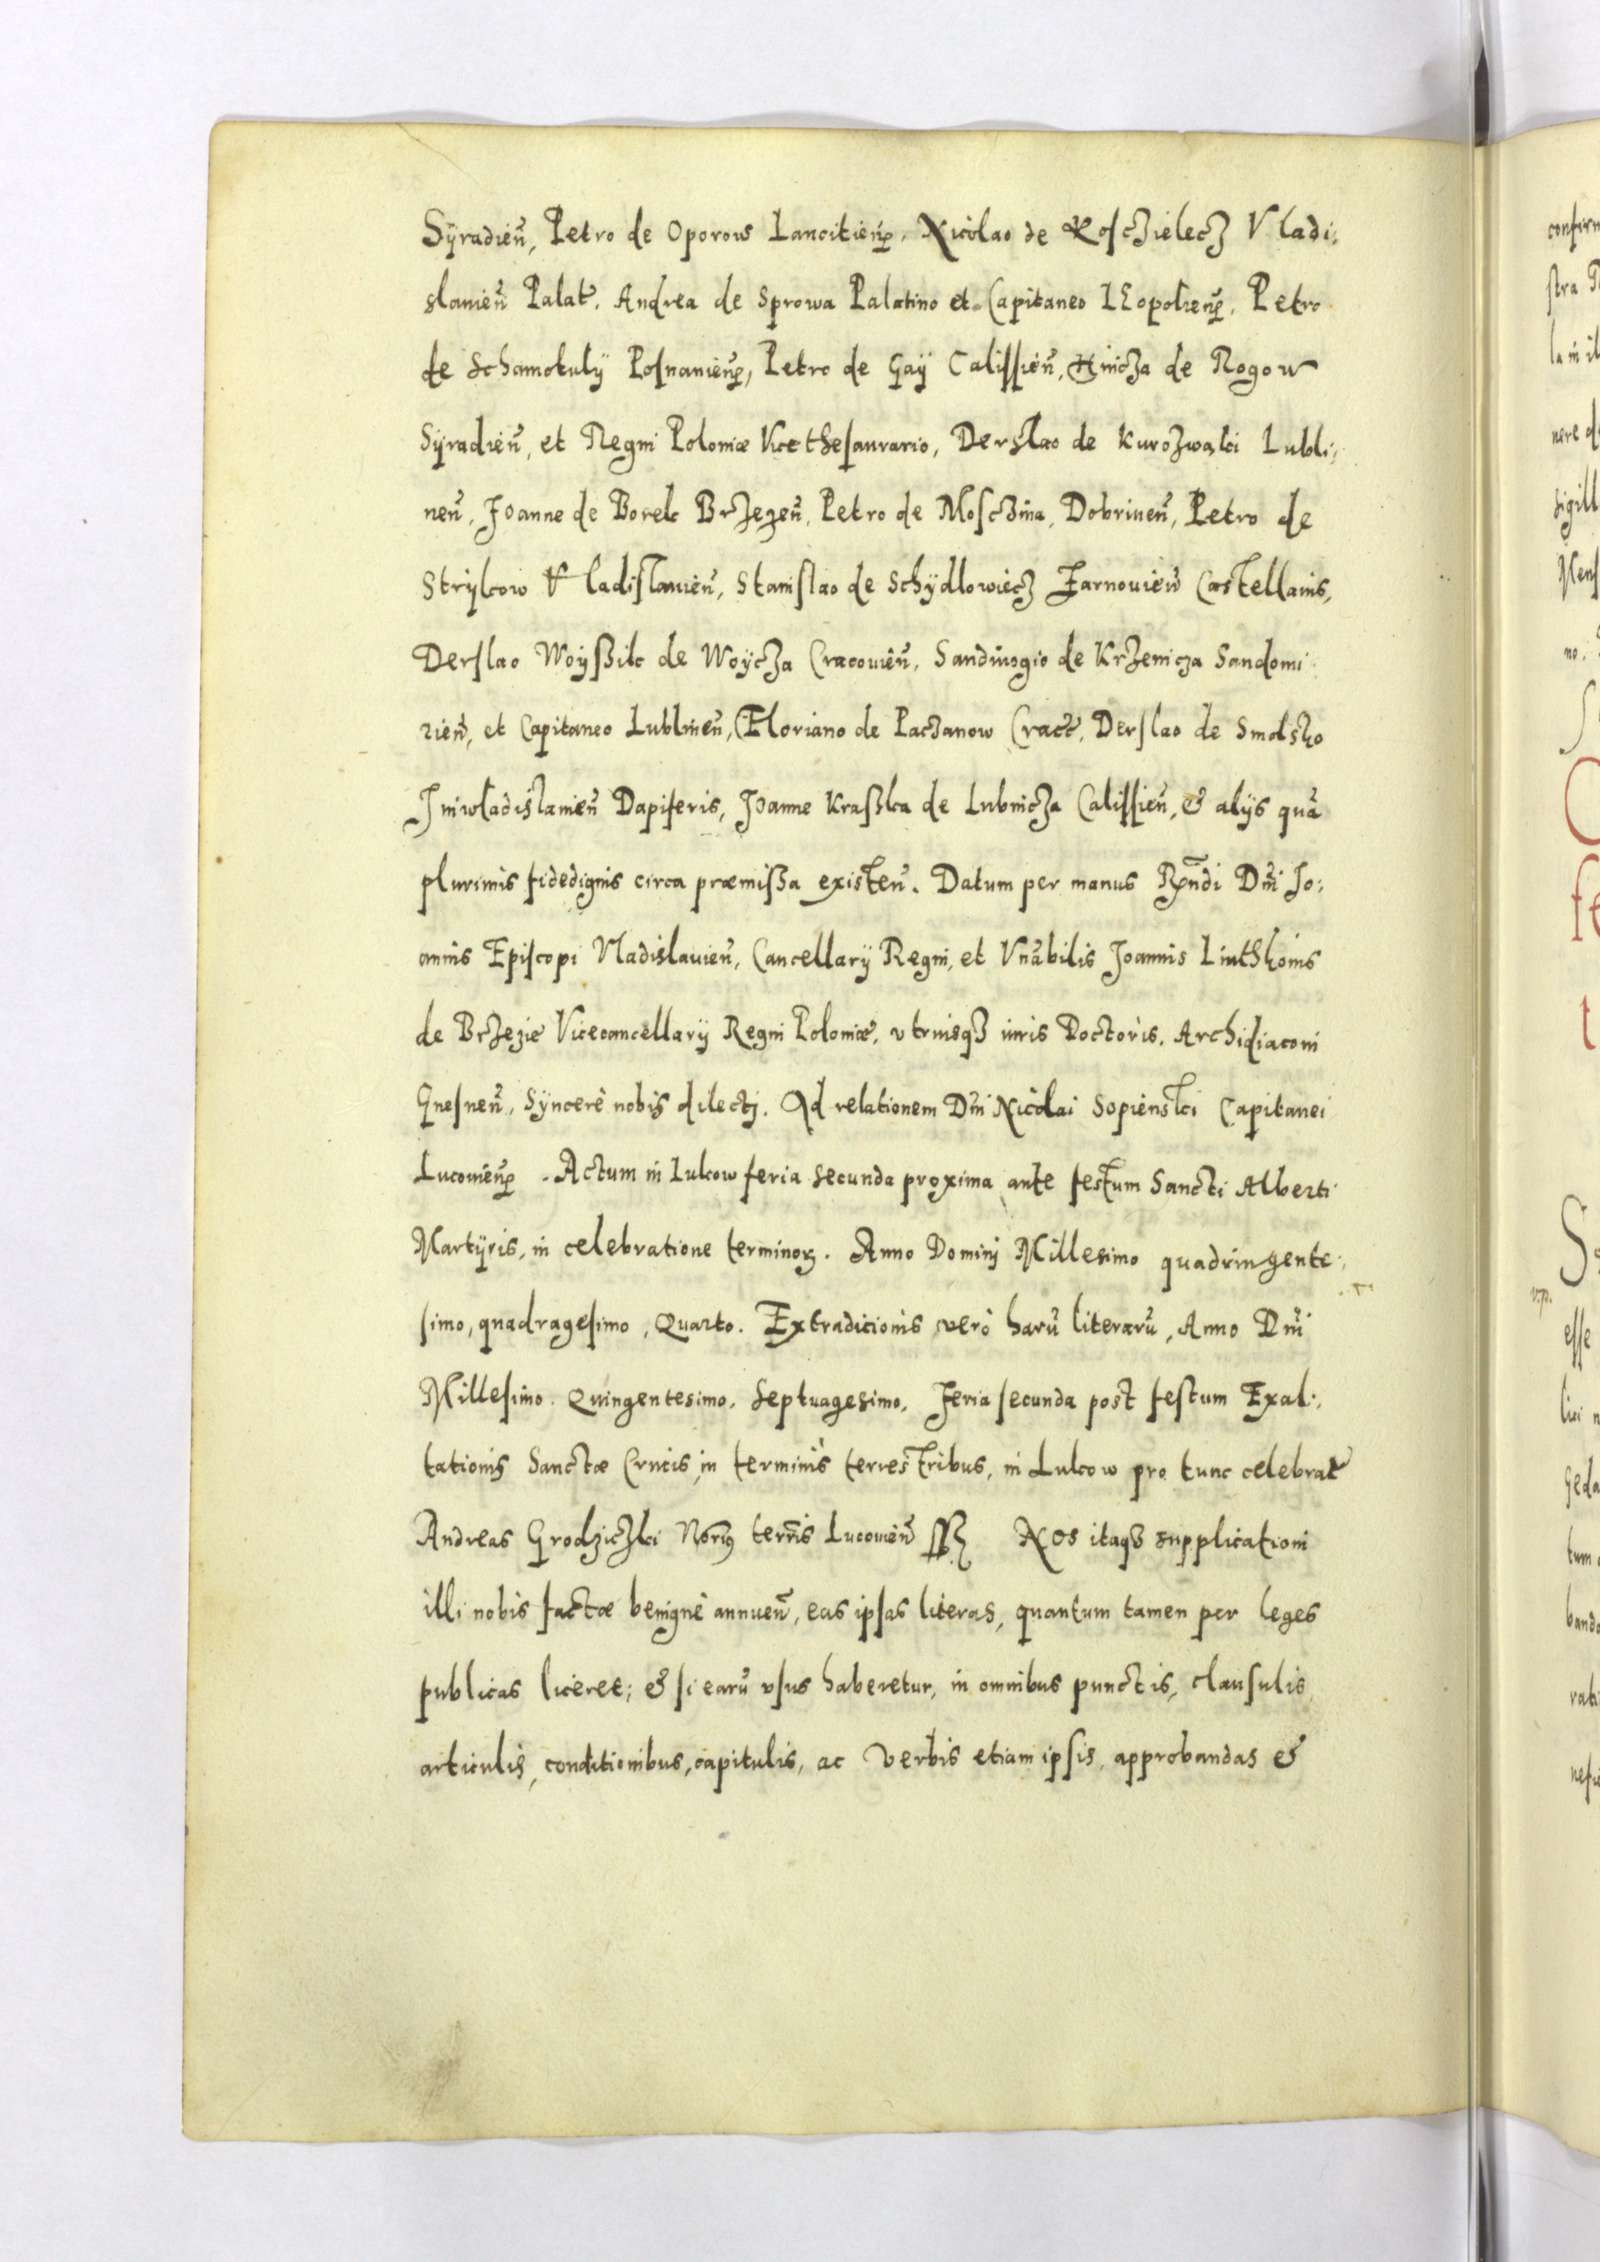 Sÿradień, Petro de Oporow Lancitień, Nicolao de Koscʒielecʒ Vladi:
slauień Palat. Andrea de Sprowa Palatino et Capitaneo Leopolień, Petro
de Schamotulÿ Posnanień, Petro de Gaÿ Calissień, Hincʒa de Rogow
Sÿradień, et Regni Poloniæ Vicethesaurario, Derslao de Kuroʒwąki Lubli:
neń, Joanne de Borek Brʒeʒeń, Petro de Moscʒina, Dobrineń, Petro de
Strÿkow Vladislauień, Stanislao de Schÿdlowiecʒ Żarnouień Castellanis,
Derslao Woÿßik de Woÿcʒa Cracouień, Sandiuogio de Krʒenicza Sandomi
rień, et Capitaneo Lublineń, Floriano de Pacʒanow Crac̃, Derslao de Smolsko
Iuniwladislauień Dapiferis, Joanne Kraßka de Lubnicʒa Calissień, & alijs quã
plurimis fidedignis circa præmißa existeń. Datum per manus Rñdi Dñi Jo:
annis Episcopi Vladislauień, Cancellarÿ Regni, et Vnãbilis Joannis Linthonis
de Brʒezie Vicecancellarÿ Regni Poloniæ, vtriusqʒ iuris Doctoris. Archidiaconi
Gnesneń, Sÿncerè nobis dilecti. Ad relationem Dñi Nicolai Sopieński Capitanei
Lucouień. Actum in Lukow feria secunda proxima ante festum Sancti Alberti
Martÿris, in celebratione terminoꝝ. Anno Domini Millesimo quadringente:
simo, quadragesimo, Quarto. Extradicionis verò harũ literarũ, Anno Dñi
Millesimo. Quingentesimo. Septuagesimo, Feria secunda post festum Exal:
tationis Sanctæ Crucis, in terminis terrestribus, in Lukow pro tunc celebrat̃
Andreas Grodzicʒki Norius terrñis Lucouień ssʒ Nos itaqʒ supplicationi
illi nobis factæ benignè annueń, eas ipsas literas, quantum tamen per leges
publicas liceret; & si earũ vsus haberetur, in omnibus punctis, clausulis
articulis, conditionibus, capitulis, ac verbis etiam ipsis, approbandas &